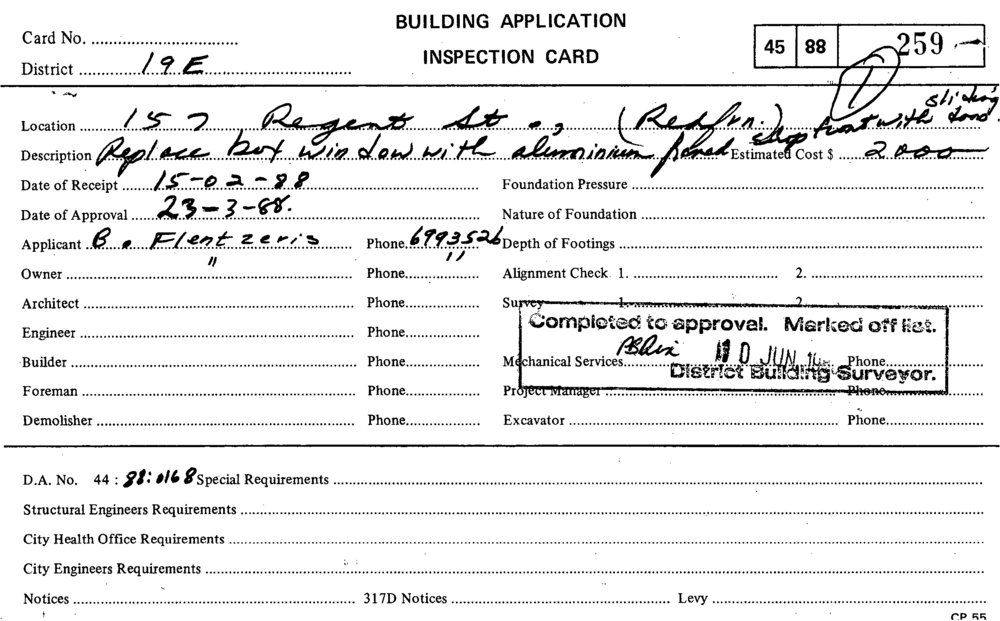 BUILDING APPLICATION
INSPECTION CARD
Card No.
District 19E
45 88 259
1
Location 157 Regent St., (Redfrn.) sliding
Description Replace box window with aluminium framed shop front with door. Estimated Cost $ 2000
Date of Receipt 15-02-88 Foundation Pressure
Date of Approval 23-3-88. Nature of Foundation
Applicant B. Flentzeris Phone 6993526 Depth of Footings
Owner " Phone " Alignment Check 1. 2.
Architect Phone Survey 1. 2.
Completed to approval. Marked off list.
Engineer Phone
Builder Phone Mechanical Services Phone
JUN
District Building Surveyor.
Foreman Phone Project Manager Phone
Demolisher Phone Excavator Phone
D.A. No. 44 : 88:0168 Special Requirements
Structural Engineers Requirements
City Health Office Requirements
City Engineers Requirements
Notices 317D Notices Levy
CP 55